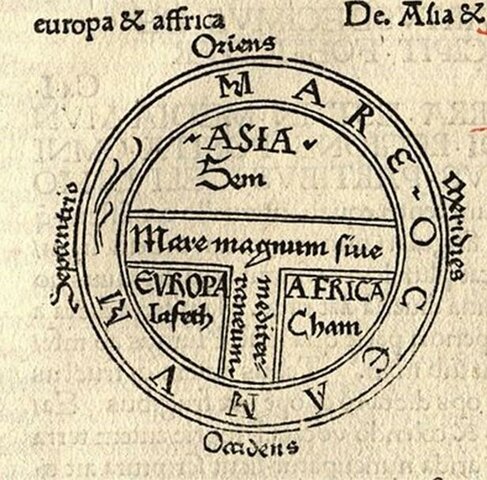 europa & affrica
De. Asia &
Oriens
MARE OCCEANVM
Septentrio
Meridies
ASIA
Sem
Mare magnum siue
mediter
raneum.
EVROPA
Iafeth
AFRICA
Cham
Occidens